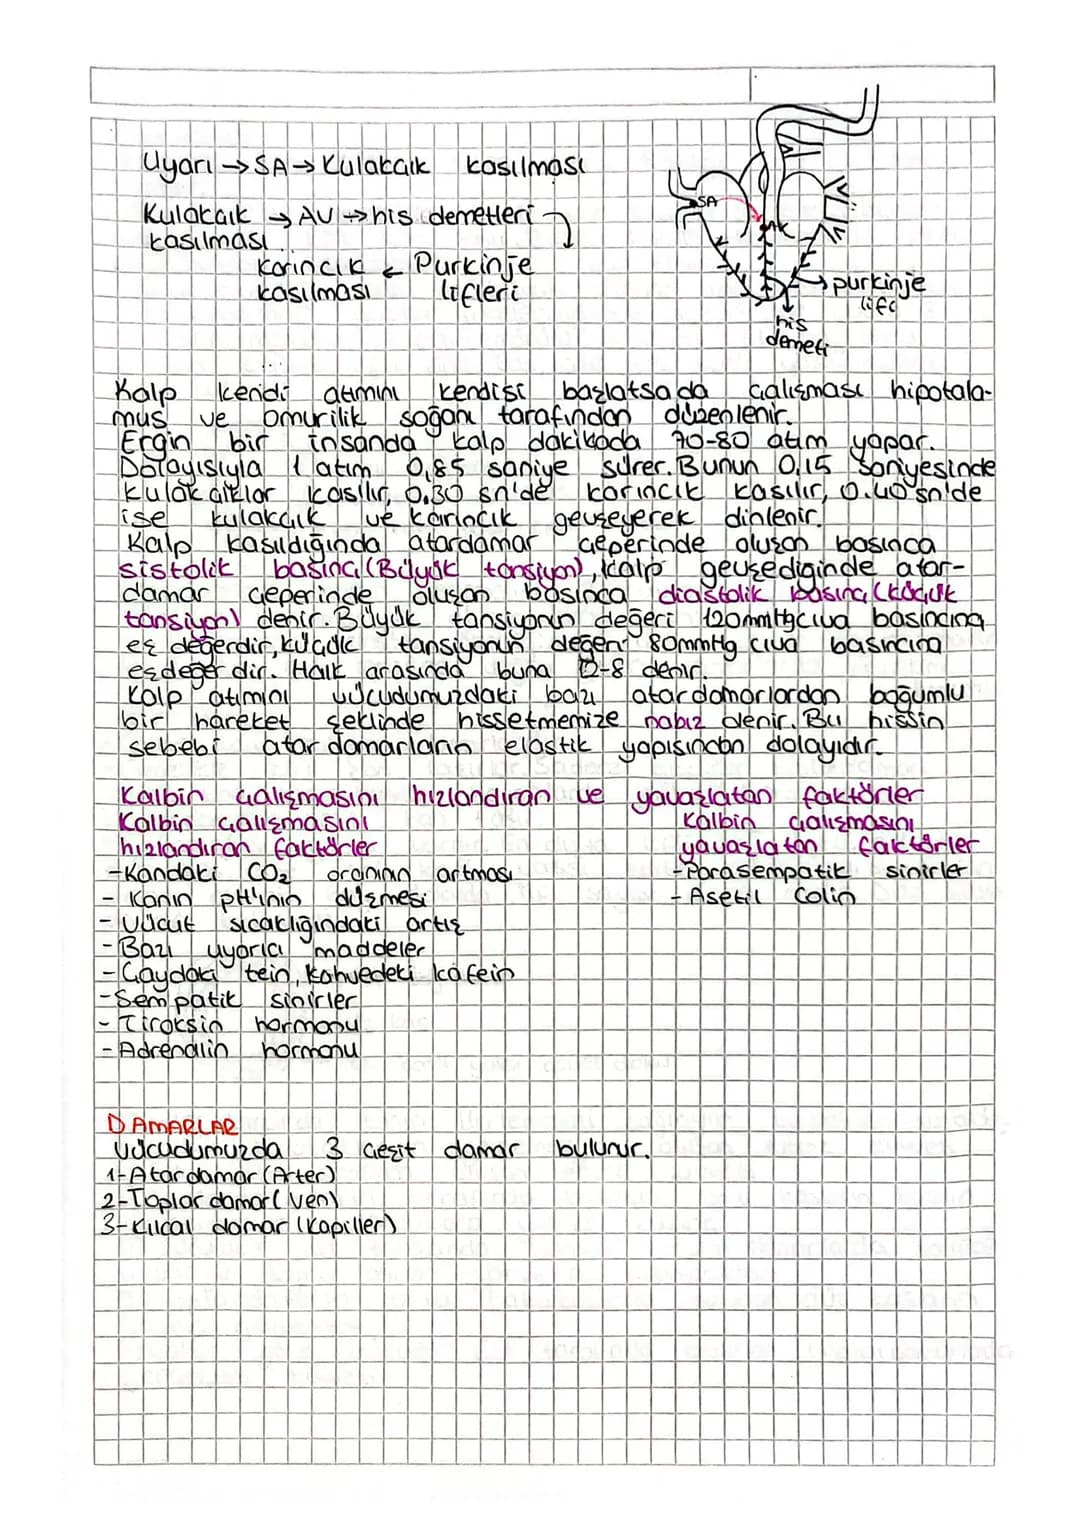 Uyarı → SA → Kulakcık kasılması
Kulakcık → AV → his demetleri
kasılması
Karıncık ← Purkinje
kasılması lifleri
SA
purkinje
lifi
his
demeti
Kalp kendi atımını kendisi başlatsada çalışması hipotala-
mus ve omurilik soğanı tarafından düzenlenir.
Ergin bir insanda kalp dakikada 70-80 atım yapar.
Dolayısıyla 1 atım 0,85 saniye sürer. Bunun 0,15 saniyesinde
kulakcıklar kasılır, 0.30 sn'de karıncık kasılır, 0.40 sn'de
ise kulakcık ve karıncık gevşeyerek dinlenir.
Kalp kasıldığında atardamar çeperinde oluşan basınca
sistolik basınç (Büyük tansiyon), kalp gevşediginde atar-
damar çeperinde oluşan basınca diastolik basınç (küçük
tansiyon) denir. Büyük tansiyonun değeri 120mmHg cıva basıncına
eş değerdir, küçük tansiyonun değeri 80mmHg cıva basıncına
eşdeğer dir. Halk arasında buna 12-8 denir.
Kalp atımını vücudumuzdaki bazı atardamarlardan boğumlu
bir hareket şeklinde hissetmemize nabız denir. Bu hissin
sebebi atar damarların elastik yapısından dolayıdır.
Kalbin çalışmasını hızlandıran ve yavaşlatan faktörler
Kalbin çalışmasını
hızlandıran faktörler
-Kandaki CO₂ oranının artması
- Kanın pH'ının düşmesi
- Vücut sıcaklığındaki artış
- Bazı uyarıcı maddeler
- Çaydaki tein, kahvedeki kafein
-Sempatik sinirler
- Tiroksin hormonu
- Adrenalin hormonu
Kalbin çalışmasını
yavaşlatan faktörler
-Parasempatik sinirler
- Asetil Colin
DAMARLAR
Vücudumuzda 3 çeşit damar bulunur.
1-Atardamar (Arter)
2-Toplar damar (Ven)
3-Kılcal damar (Kapiller)